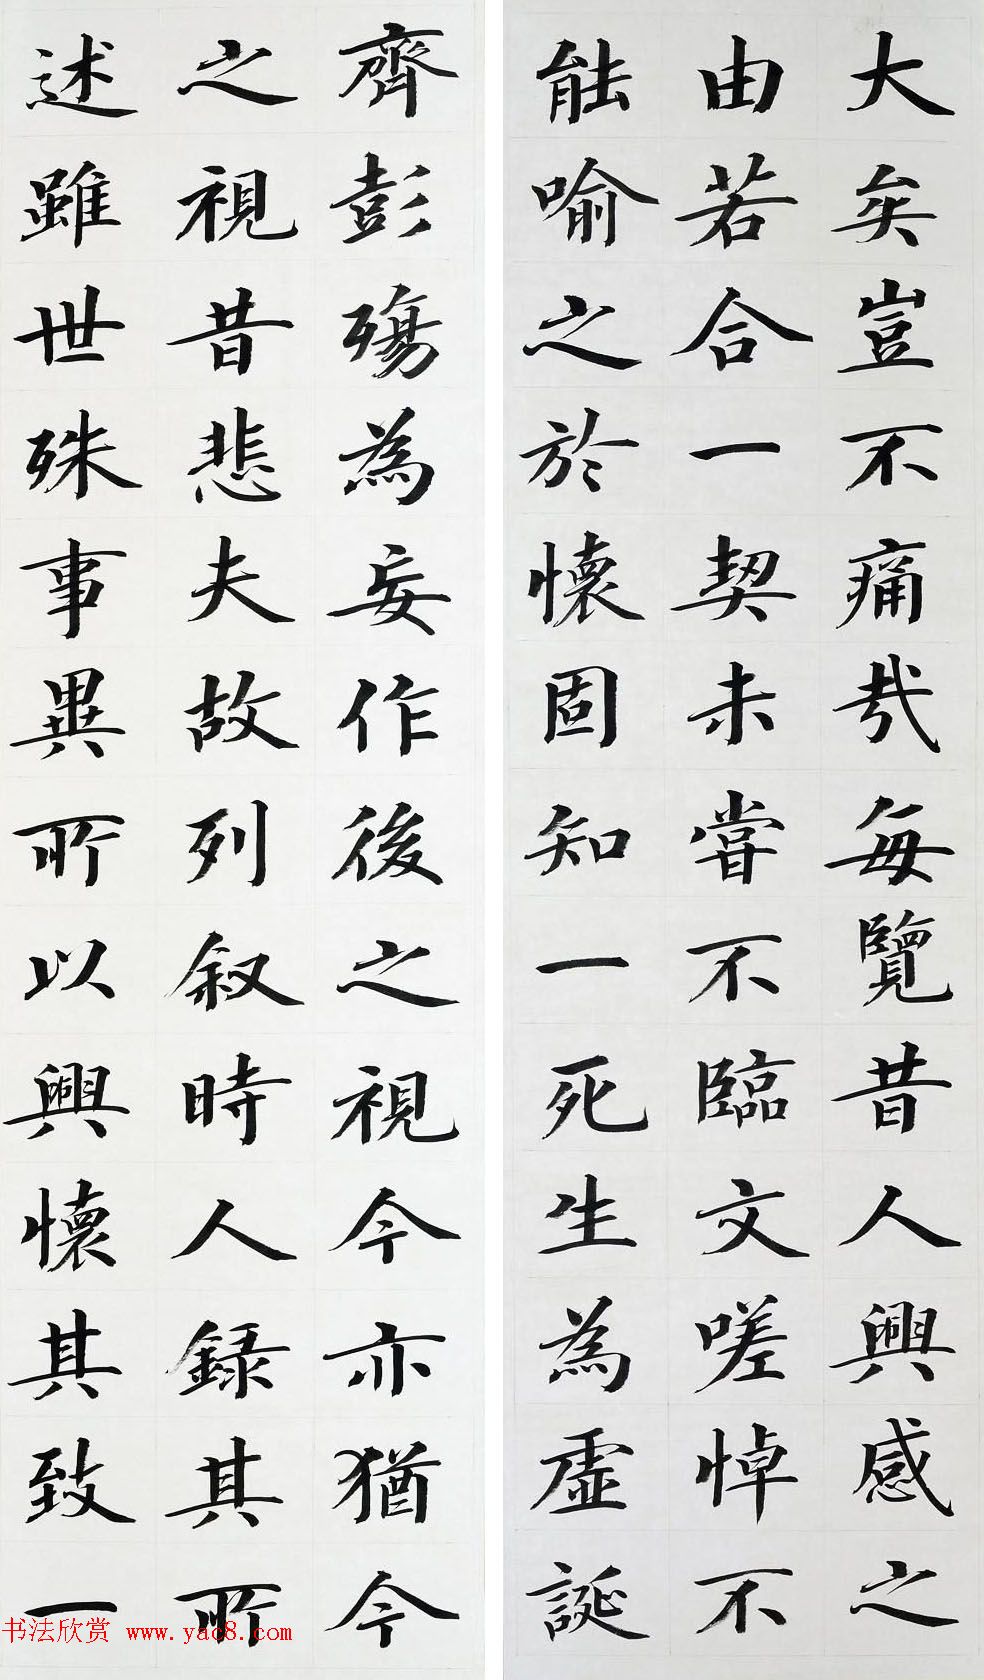 大矣豈不痛哉每覽昔人興感之
由若合一契未嘗不臨文嗟悼不
能喻之於懷固知一死生為虛誕
齊彭殤為妄作後之視今亦猶今
之視昔悲夫故列叙時人錄其所
述雖世殊事異所以興懷其致一
书法欣赏 www.yac8.com